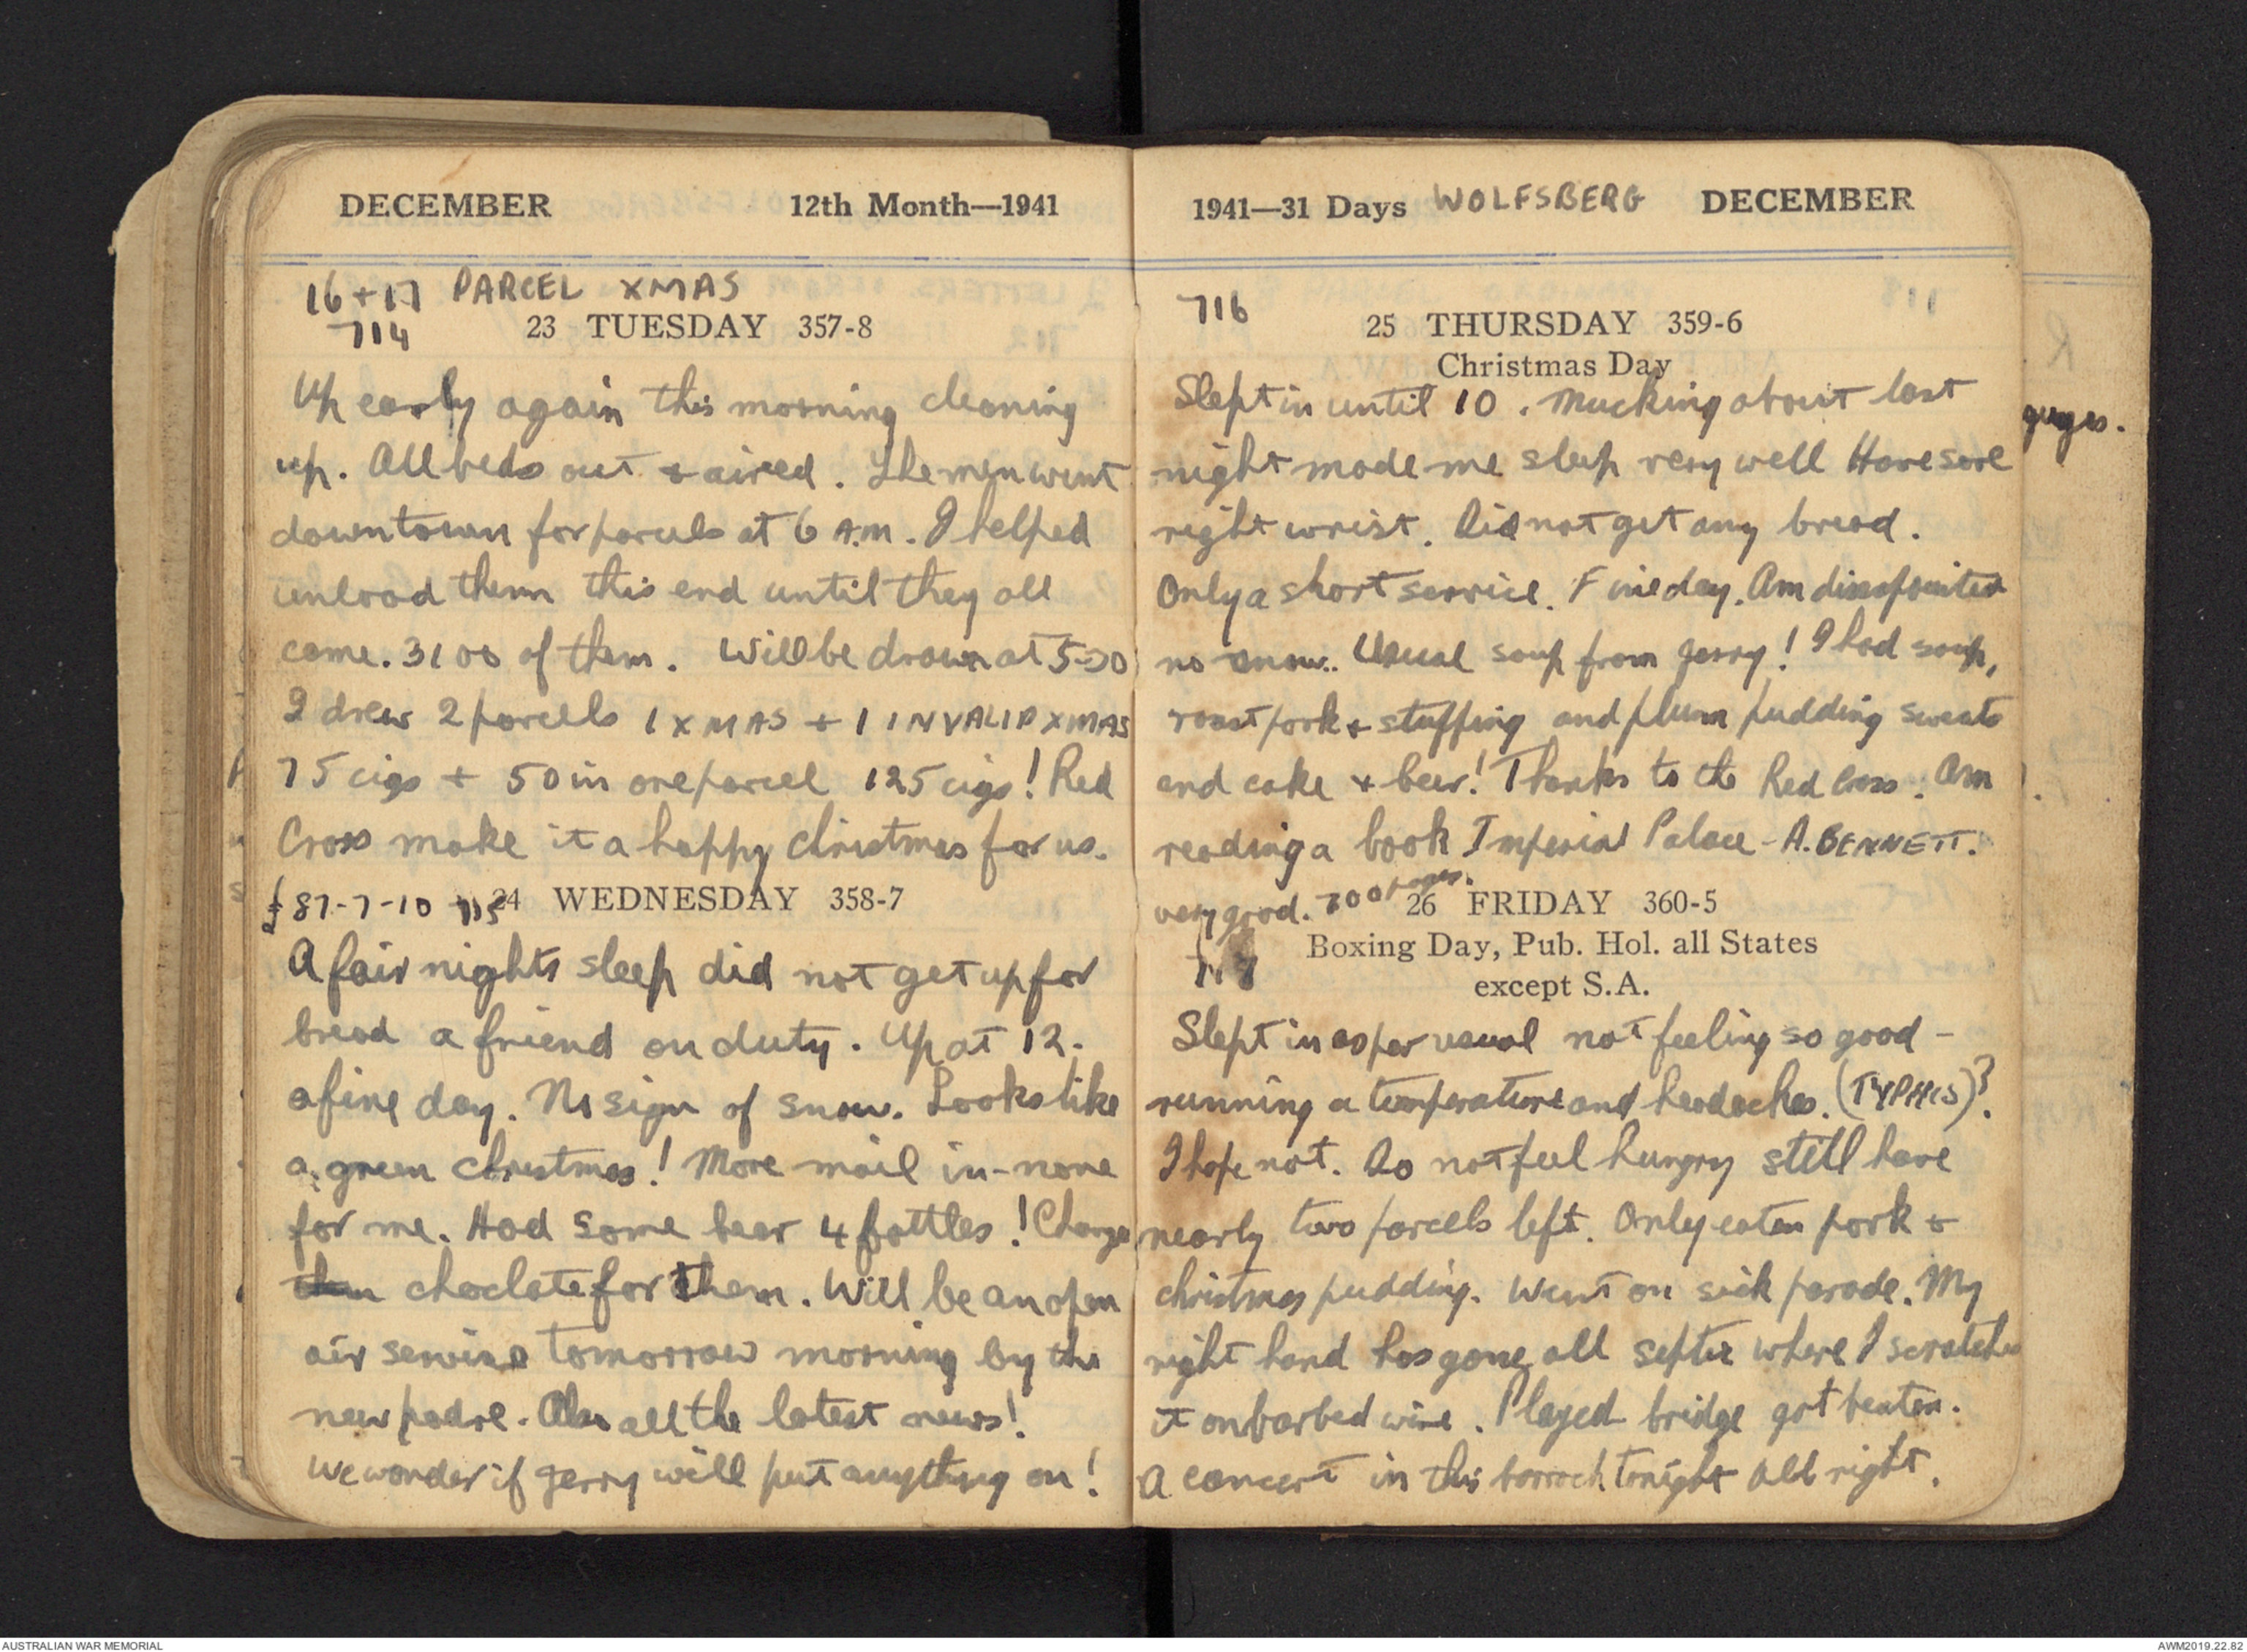 DECEMBER 12th Month—1941
16 + 17 PARCEL XMAS
714 23 TUESDAY 357-8
Up early again this morning cleaning
up. All beds out & aired. The men went
downtown for parcels at 6 A.M. I helped
unload them this end until they all
come. 3100 of them. Will be drawn at 5-30
I drew 2 parcels 1 XMAS + 1 INVALID XMAS
75 cigs + 50 in one parcel 125 cigs! Red
Cross make it a happy christmas for us.
£87-7-10 715 24 WEDNESDAY 358-7
A fair nights sleep did not get up for
bread a friend on duty. Up at 12.
a fine day. No sign of snow. Looks like
a green christmas! More mail in - none
for me. Had some bear 4 bottles! Charge
them choclate for them. Will be an open
air service tomorrow morning by the
new padre. Also all the latest news!
We wonder if gerry will put anything on!
1941—31 Days WOLFSBERG DECEMBER
716 25 THURSDAY 359-6
Christmas Day
Slept in until 10. Mucking about last
night made me sleep very well Have sore
right wrist. Did not get any bread.
Only a short service. Fine day. Am disapointed
no snow. Usual soup from gerry! I had soup,
roast pork & stuffing and plum pudding sweats
and cake & beer! Thanks to the Red Cross. Am
reading a book Imperial Palace - A. BENNETT.
very good. 700 pages.
26 FRIDAY 360-5
717 Boxing Day, Pub. Hol. all States
except S.A.
Slept in as per usual not feeling so good -
running a temperature and headaches. (TYPHUS)?
I hope not. Do not feel hungry still have
nearly two parcels left. Only eaten pork &
christmas pudding. Went on sick parade. My
right hand has gone all septic where I scratched
it on barbed wire. Played bridge got beaten.
A concert in this barrack tonight all right.
AUSTRALIAN WAR MEMORIAL
AWM2019.22.82